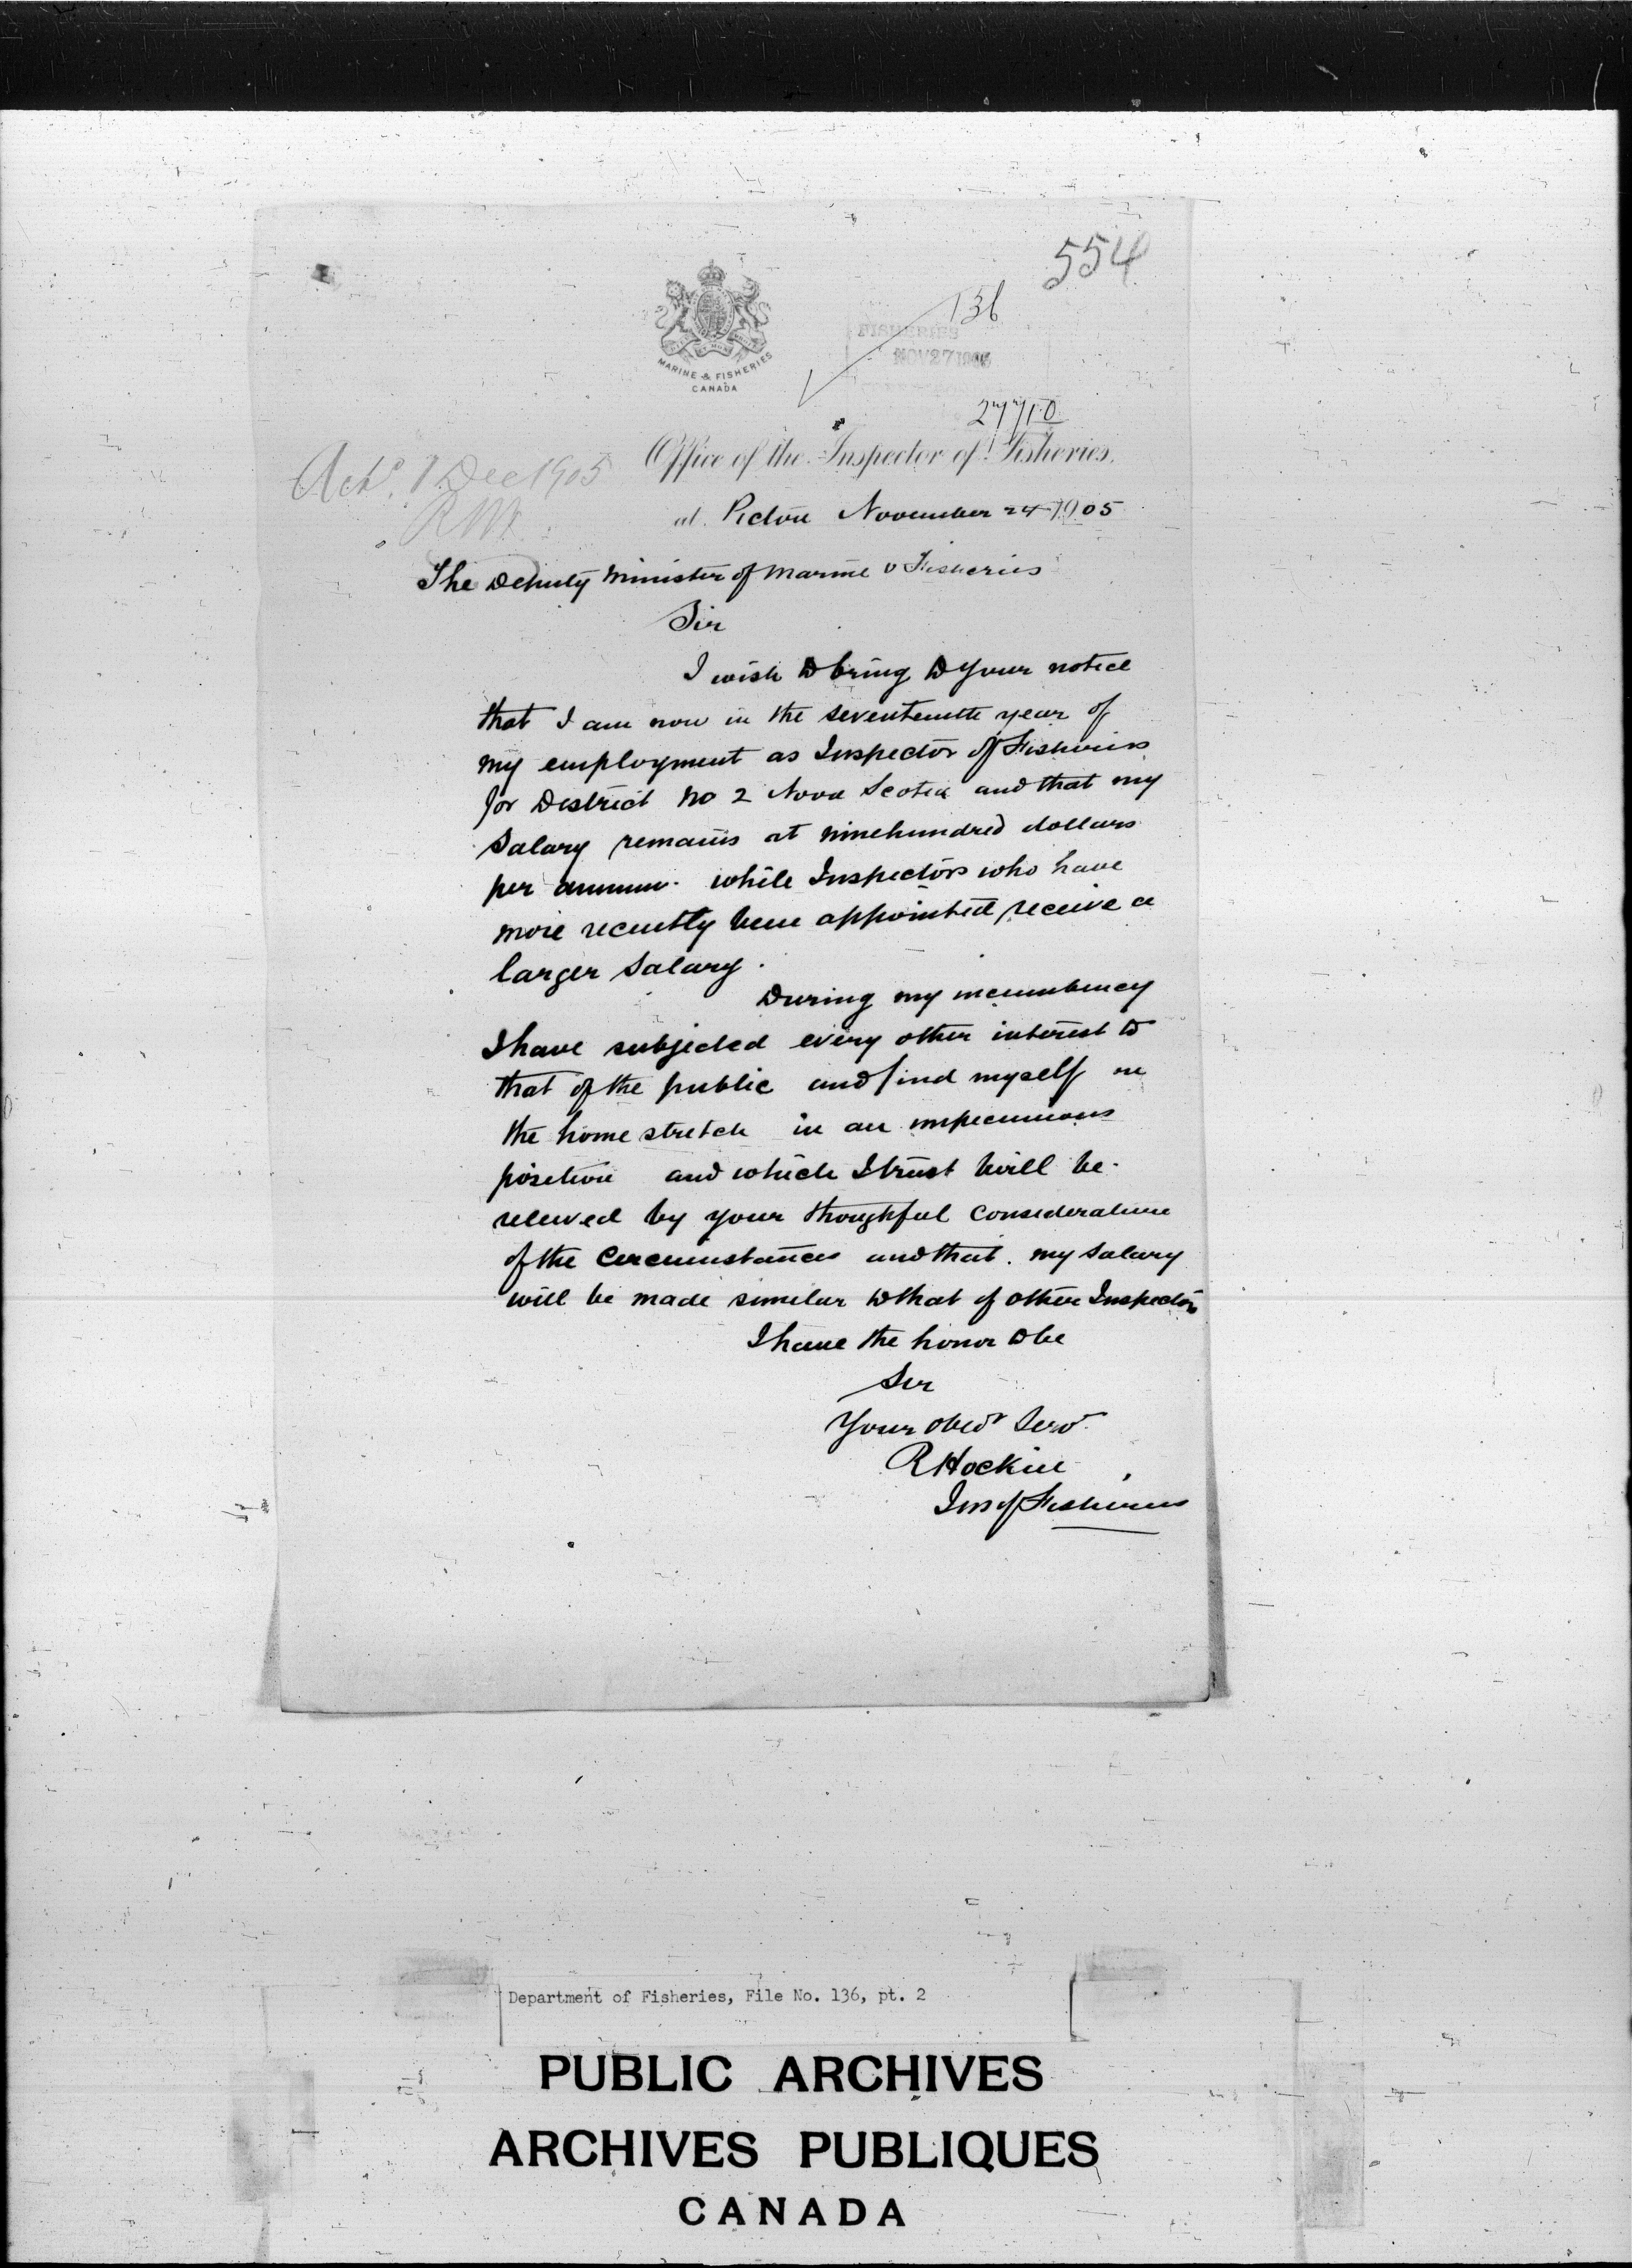 554
136
MARINE & FISHERIES
CANADA
FISHERIES
NOV 27 1905
27710
Office of the Inspector of Fisheries.
Ackd. 1 Dec 1905
at Pictou November 24 1905
The Deputy Minister of Marine & Fisheries
Sir
I wish to bring to your notice
that I am now in the seventeenth year of
my employment as Inspector of Fisheries
for District No 2 Nova Scotia and that my
salary remains at ninehundred dollars
per annum. while Inspectors who have
more recently been appointed receive a
larger salary.
During my incumbency
I have subjected every other interest to
that of the public and find myself on
the home stretch in an impecunious
position and which I trust will be
relieved by your thoughtful consideration
of the circumstances and that my salary
will be made similar to that of other Inspectors
I have the honor to be
Sir
Your obedt Servt
R Hockin
Ins of Fisheries
Department of Fisheries, File No. 136, pt. 2
PUBLIC ARCHIVES
ARCHIVES PUBLIQUES
CANADA